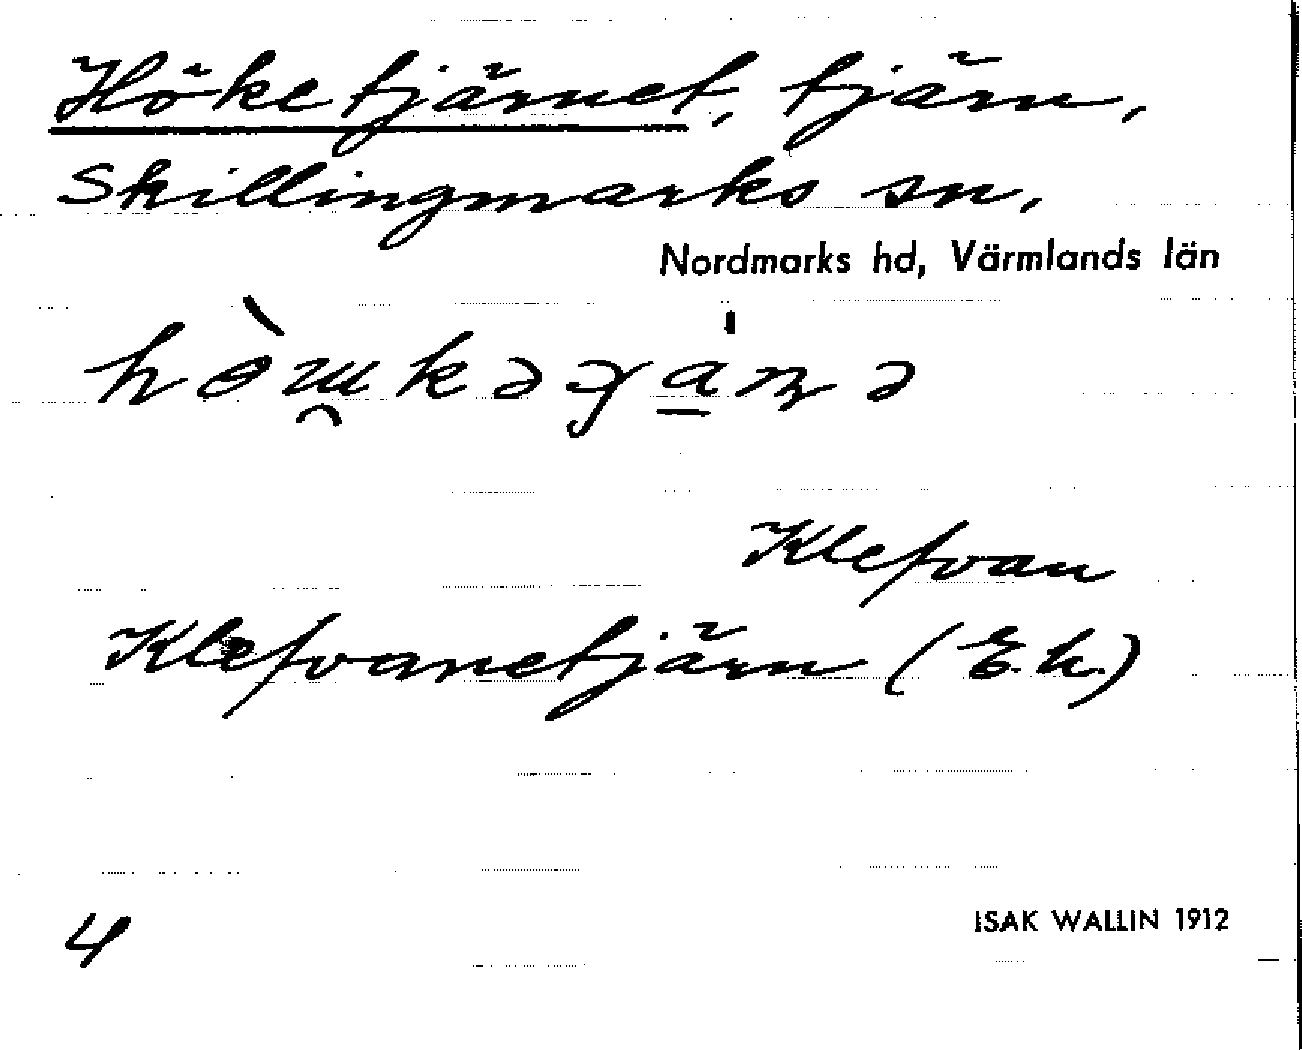 Höketjärnet, tjärn,
Skillingmarks sn,
Nordmarks hd, Värmlands län
Klefvan
Klefvanetjärn (E.k.)
4
ISAK WALLIN 1912